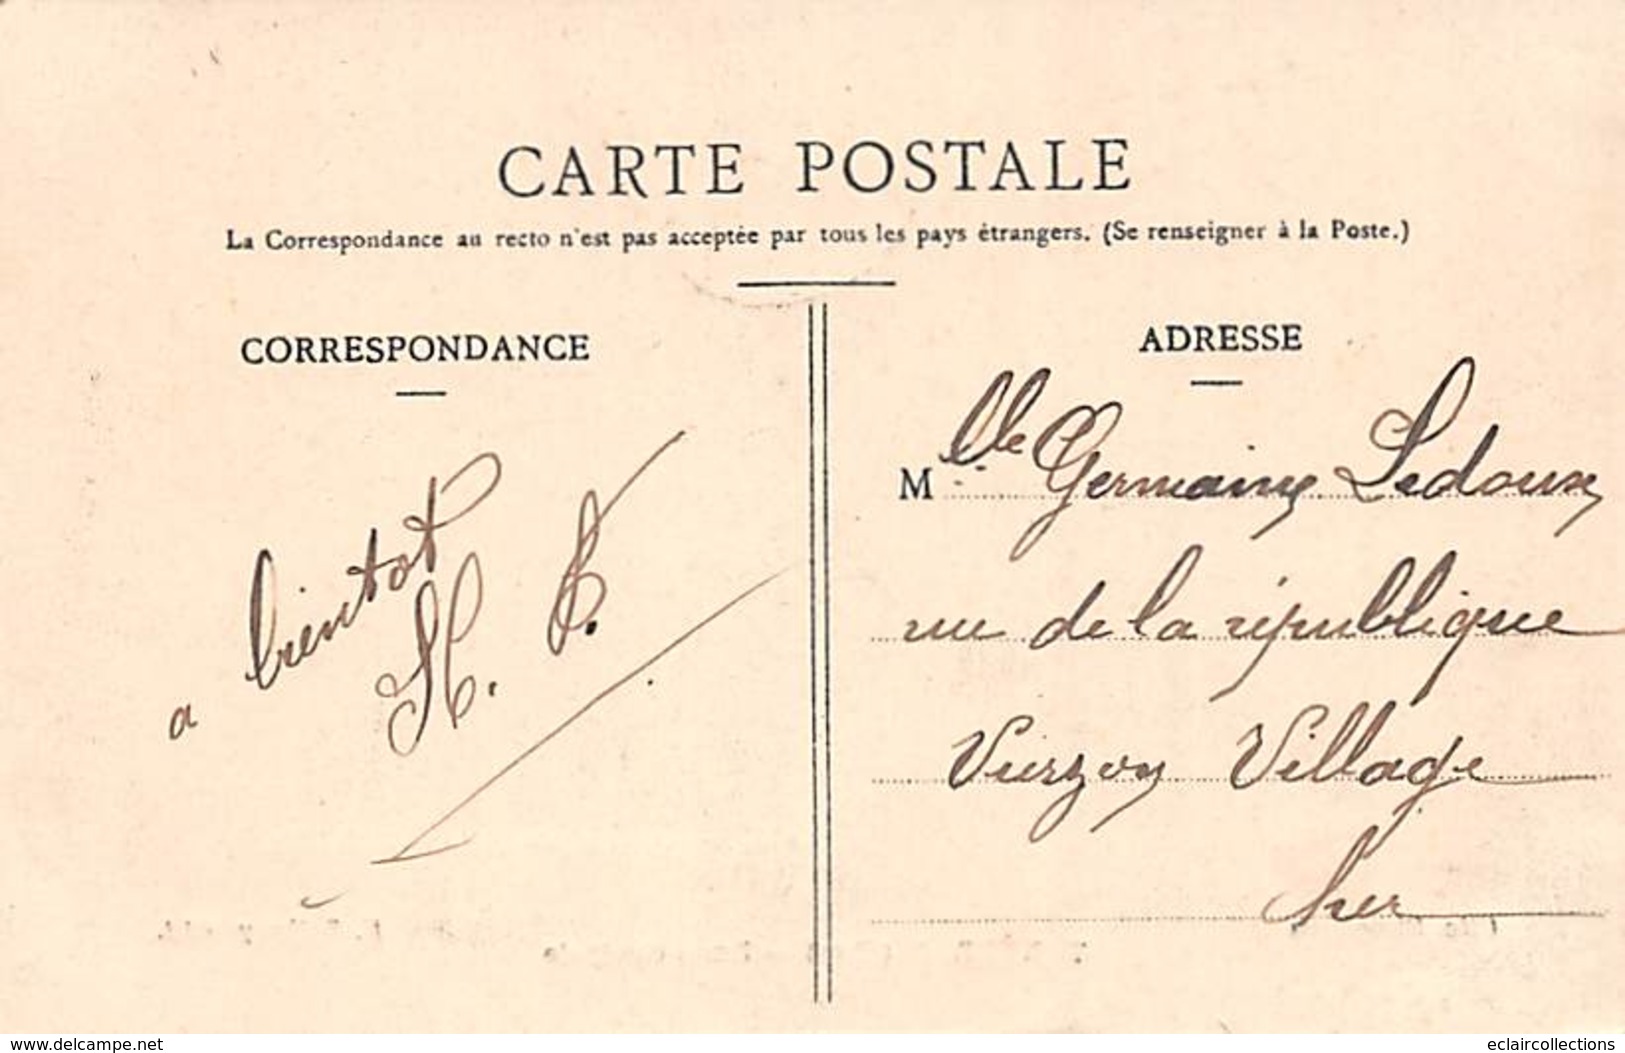 CARTE POSTALE
La Correspondance au recto n'est pas acceptée par tous les pays étrangers. (Se renseigner à la Poste.)
CORRESPONDANCE
a bientot
H.
ADRESSE
Mlle Germaine Ledoux
rue de la république
Vierzon Village
Cher
www.delcampe.net
eclaircollections